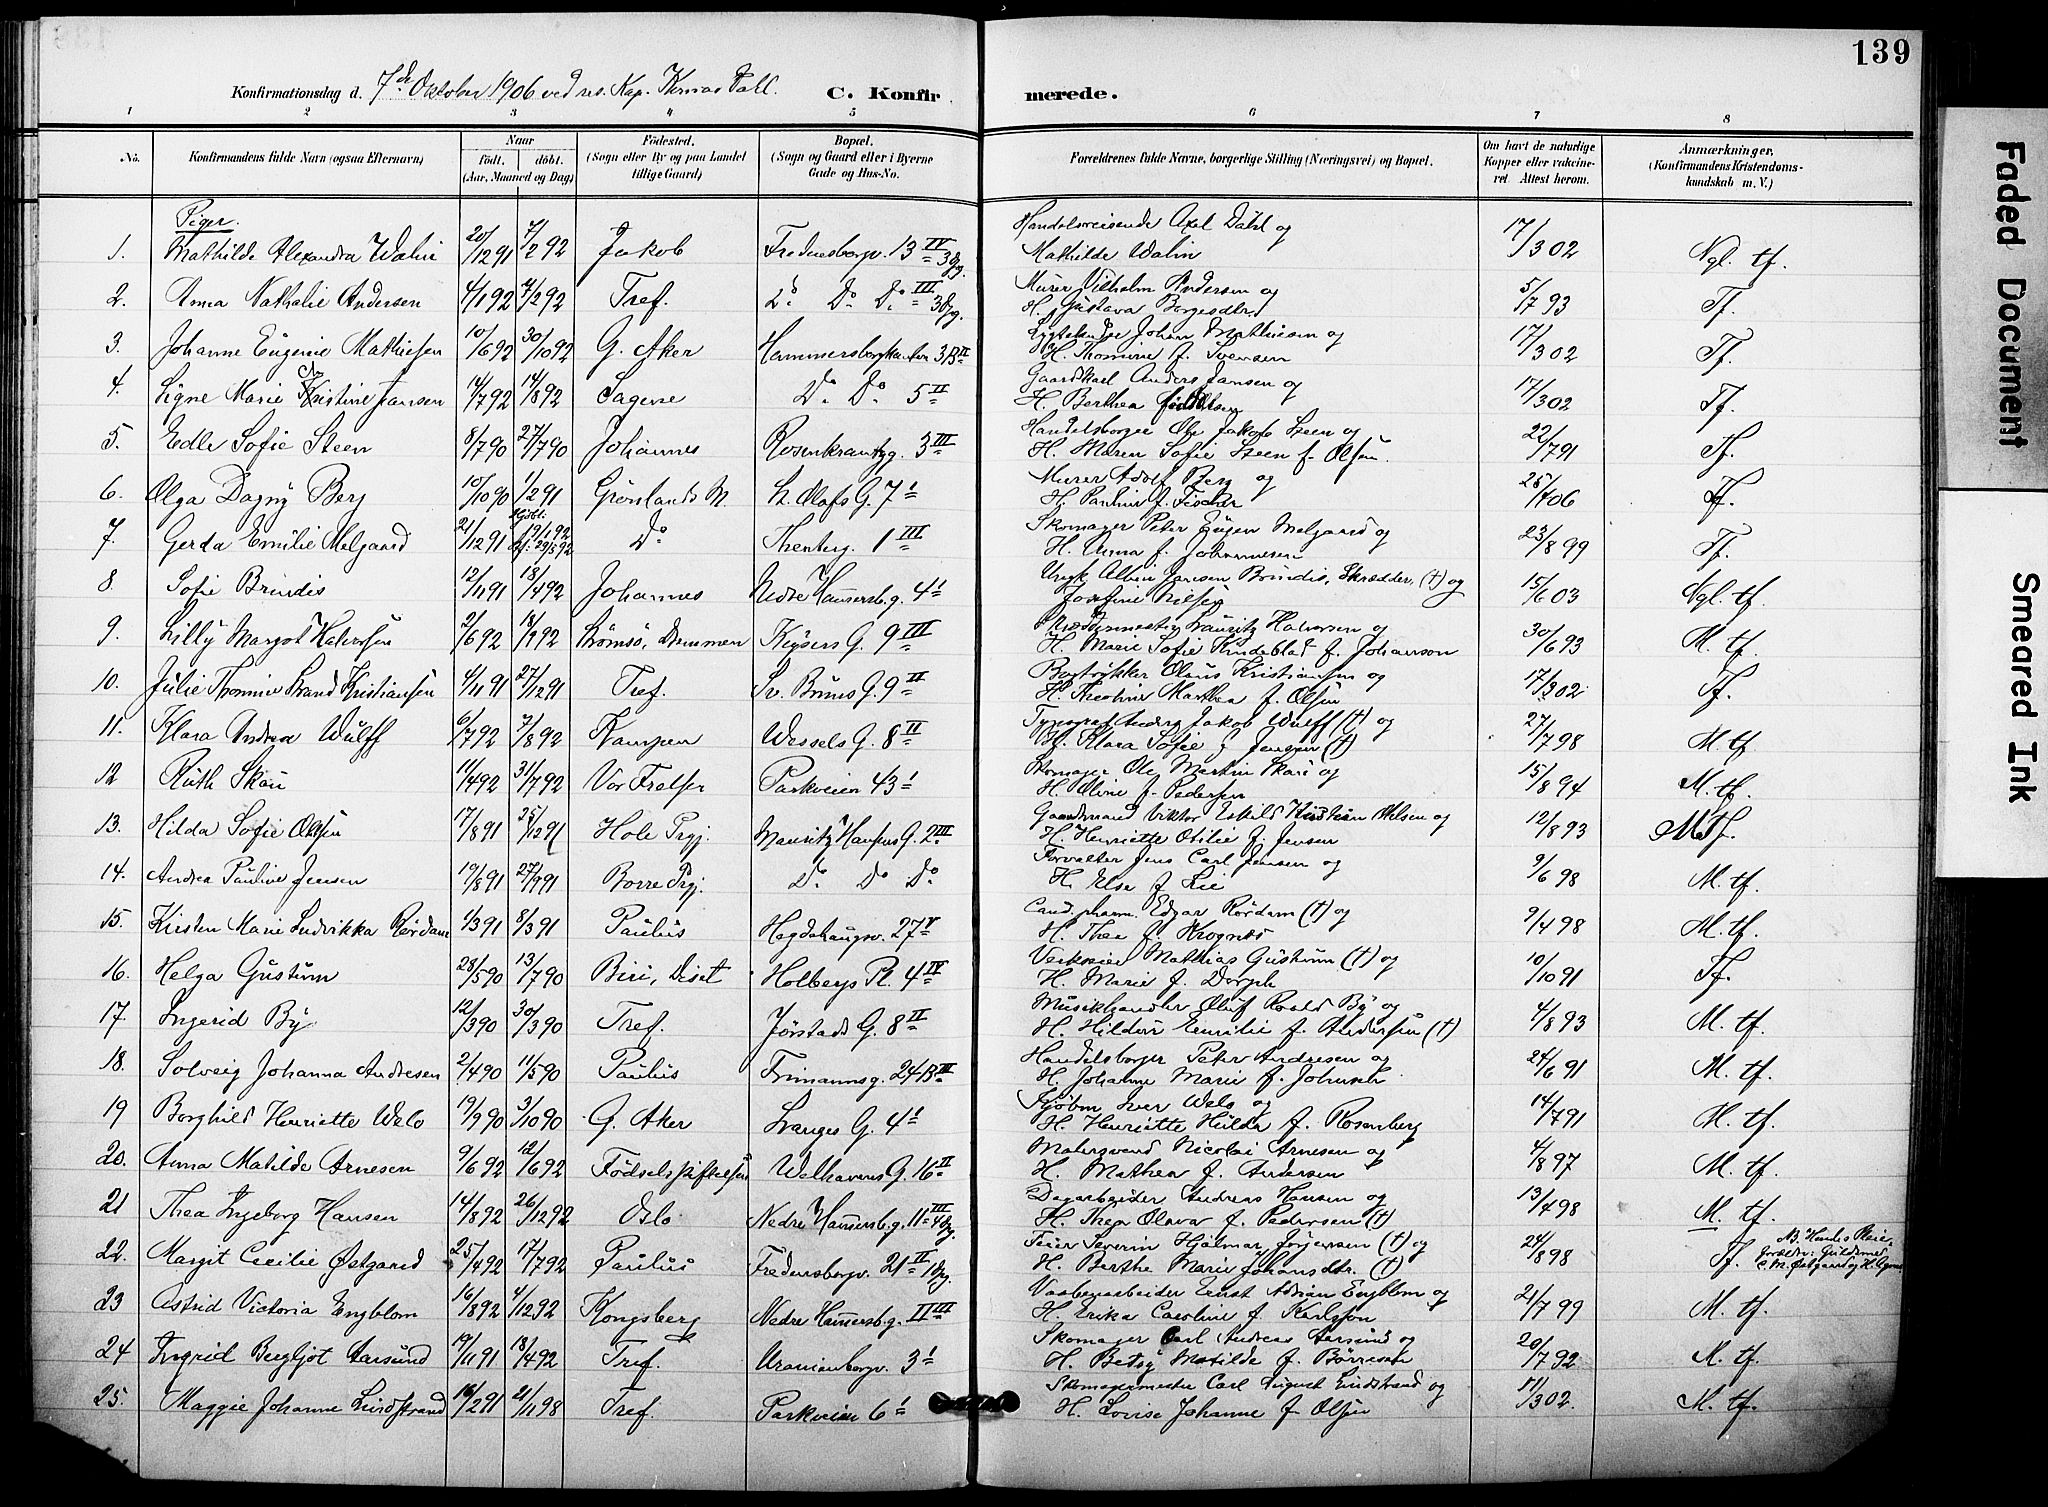 139
Konfirmationsdag d. 7de Oktober 1906 ved res. Kap. C. Konfirmerede.
1 2 3 4 5 6 7 8
No. Konfirmandens fulde Navn (ogsaa Efternavn) Naar födt. döbt. (Aar, Maaned og Dag) Födested. (Sogn eller By og paa Landet tillige Gaard) Bopæl. (Sogn og Gaard eller i Byerne Gade og Hus-No. Forældrenes fulde Navne, borgerlige Stilling (Næringsvei) og Bopæl. Om havt de naturlige Kopper eller vakcineret. Attest herom. Anmærkninger, (Konfirmandens Kristendomskundskab m. V.)
Piger.
1. Mathilde Alexandra Walin 20/12 91 7/2 92 Jakob Fredensborgv. 13 IV 3 Opg. Handelsreisende Axel Dahl og Mathilde Walin 17/3 02 Ngl. tf.
2. Anna Nathalie Andersen 4/1 92 7/2 92 Tref. Do Do Do III 3 Opg. Murer Vilhelm Andersen og H. Gustava Borgesdtr. 5/7 93 Tf.
3. Johanne Eugenie Mathiesen 10/6 92 30/10 92 G. Aker 3 B II Johan Mathiesen og H. Thomine f. Svensen 17/3 02 Tf.
4. Signe Marie Kristine Jansen 14/7 92 14/8 92 Sagene Do Do 5 II Gaardskarl Anders Jansen og H. Berthea 17/3 02 Tf.
5. Edle Sofie Steen 8/7 90 27/7 90 Johannes Rosenkrantzg. 3 III Handelsborger Ole Jakob Steen og H. Maren Sofie Steen f. Olsen. 22/7 91 Tf.
6. Olga Dagny Berg 10/10 90 1/2 91 Grönlands M. St. Olafs G. 7 I Murer Adolf Berg og H. Pauline f. Fischer 06 Tf.
7. Gerda Emilie Melgaard 21/12 91 Hjdbt. 19/1 92 29/5 92 Do 1 III Skomager Peter Eugen Melgaard og H. Anna f. Johannesen 23/8 99 Tf.
8 Sofie Brindis 12/11 91 18/4 92 Johannes Nedre Hammersb.g. 4 I Albin Jansen Brindis, Skrædder, (†) og Josefine Nilsen 15/6 03 Ngl. tf.
9. Lilly Margot Halvorsen 2/6 92 18/9 92 Strömsö, Drammen Keysers G. 9 III Lauritz Halvorsen og H. Marie Sofie f. Johanson 30/6 93 M. tf.
10. Julie Thomine Strand Kristiansen 4/11 91 27/12 91 Tref. Sv. Bruns G. 9 II Bogtrykker Olaus Kristiansen og H. Theoline Marthea f. Olsen 17/3 02. Tf.
11. Klara Andrea Wulff 6/7 92 7/8 92 Kampen Wessels G. 8 II Typograf Jakob Wulff (†) og H. Klara Sofie f. Jensen (†) 27/7 98 M. tf.
12 Ruth Skau 11/4 92 31/7 92 Vor Frelser Parkveien 43 I Skomager Ole Martin Skau og H. Oline f. Pedersen 15/8 94 M. tf.
13. Hilda Sofie Olsen 17/8 91 25/12 91 Hole Prgj. Mauritz Hansens G. 2 III Gaardmand Viktor Eskild Kristian Olsen og H. Henriette Otilie f. Jensen 12/8 93 M. tf.
14. Andrea Pauline Jensen 19/8 91 27/9 91 Borre Prgj. Do Do Do Forvalter Jens Carl Jensen og H. Elsa f. Lie 9/6 98 M. tf.
15. Kirsten Marie Ludvikka Rördam 1/3 91 8/3 91 Paulus Hegdehaugsv. 27 V Cand. pharm. Edgar Rördam (†) og H. Thea f. Krognæs 9/4 98 M. tf.
16. Helga Gustum 28/5 90 13/7 90 Biri, Holbergs Pl. 4 IV Mathias Gustum (†) og H. Marie f. Dorph 10/10 91 Tf.
17. Ingerid By 12/3 90 30/3 90 Tref. Jörstads G. 8 II Musikhandler Oluf Roald By og H. Hildur Emilie f. Andersen (†) 4/8 93 M. tf.
18. Solveig Johanna Andresen 2/4 90 11/5 90 Paulus Frimannsg. 24 B III Handelsborger Peter Andresen og H. Johanne Marie f. Johnsen 24/6 91 M. tf.
19 Borghild Henriette Welo 19/9 90 3/10 90 G. Aker Langes G. 4 I Skjöbm Iver Welo og H. Henriette Hulda f. Rosenberg 14/7 91 M. tf.
20. Anna Matilde Arnesen 9/6 92 12/6 92 Födselsstiftelsen Welhavens G. 16 II Malersvend Nicolai Arnesen og H. Mathea f. Andersen 4/8 97 M. tf.
21 Thea Ingeborg Hansen 14/8 92 26/12 92 Oslo Nedre Hammersb.g. 11 III 4 Opg. Dagarbeider Andreas Hansen og H. Thea Olava f. Pedersen (†) 13/4 98 M. tf.
22. Margit Cecilie Østgaard 25/4 92 17/7 92 Paulus Fredensborgv. 21 II 1 Opg. Feier Severin Hjalmar Jörgensen (†) og H. Berthe Marie Johansdtr. (†) 24/8 98 Tf. NB. Hendes Pleieforældre: Guldsmed C. M. Østgaard og H.
23 Astrid Victoria Engblom 16/8 92 4/12 92 Kongsberg Nedre Hammersb.g. II III Vaabenarbeider Ernst Adrian Engblom og H. Erika Caroline f. Karlsson 21/7 99 M. tf.
24 Ingrid Bergljot Aarsund 19/11 91 18/4 92 Tref. Uranienborgv. 3 I Skomager Carl Andreas Aarsund og H. Betsy Matilde f. Börresen 20/7 92 M. tf.
25. Maggie Johanne Lindstrand 16/2 91 21/11 98 Tref. Parkveien 6 I Skomagermester Carl August Lindstrand og H. Lovise Johanne f. Olsen 11/3 02. M. tf.
Faded Document
Smeared Ink